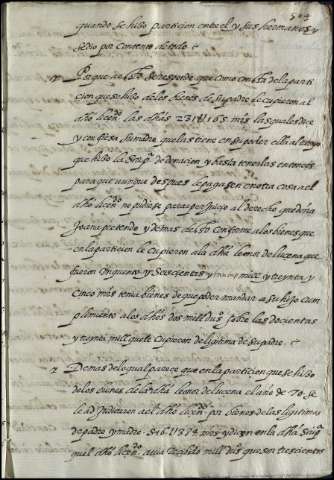 quando se hiso particion entre el y sus hermanos y
se dio por contento de todo
Por que a esto se responde que como consta de la parti
cion que se hiso de los bienes de su padre le cupieron al
dho licen.do las dhas 231U165 mrs las quales dize
y confiesa su madre que las tiene en su poder ella al tiempo
que hiso la donacion y hasta tenerlas entonces
para que aunque despues le pagasen en otra cosa el
dho licen.do no pudiese parar perjuicio al derecho que doña
Joana pretende y demas desto conforme a los bienes que
en la particion le cupieron a la dha leonor de lucena que
fueron un quento y seiscientas y mill y treynta y
cinco mrs tenia bienes de que poder mandar a su hijo cum
plimiento a los dhos dos mill du.s sobre las docientas
y treynta mill que le cupieron de legitima de su padre
2 Demas de lo qual parece que en la particion que se hiso
de los bienes de la dha leonor de lucena el año de 70 se
le adjudicaron al dho licen.do por bienes de las legitimas
de padre y madre 516U378 mrs y dizen en la dha
qual dho licen.do avia recebido mill du.s que son trescientos